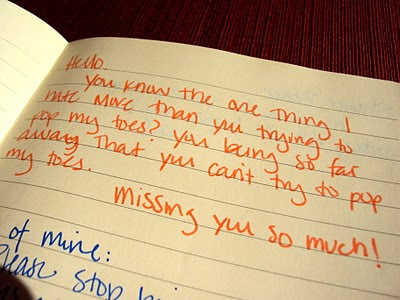 Hello.
You know the one thing I
hate more than you trying to
pop my toes? You being so far
away that you can't try to pop
my toes.
Missing you so much!
of mine:
Please stop